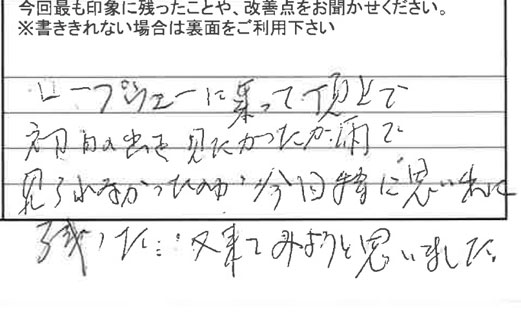 今回最も印象に残ったことや、改善点をお聞かせください。
※書ききれない場合は裏面をご利用下さい
ロープウェーに乗って頂上で
初日の出を見たかったが雨で
見られなかったのが今回特に思い出に
残った… 又来てみようと思いました。